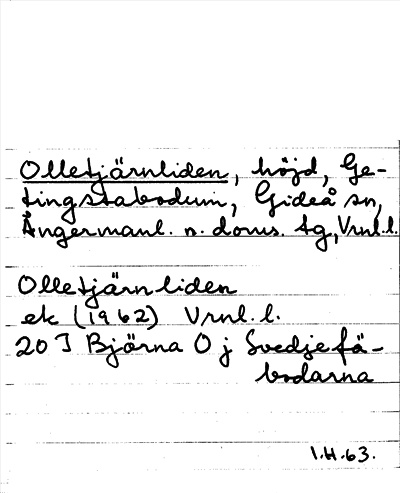 Olletjärnliden, höjd, Ge-
tingstabodum, Gideå sn,
Ångermanl. n. doms. tg, Vrnl.l.
Olletjärnliden
ek (1962) Vrnl. l.
20 I Björna O j Svedjefä-
bodarna
I.H.63.